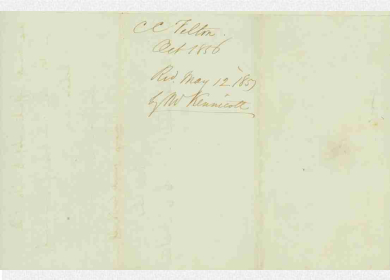 C C Felton.
Oct 1856
Recd. May 12 1857
by Kennicott